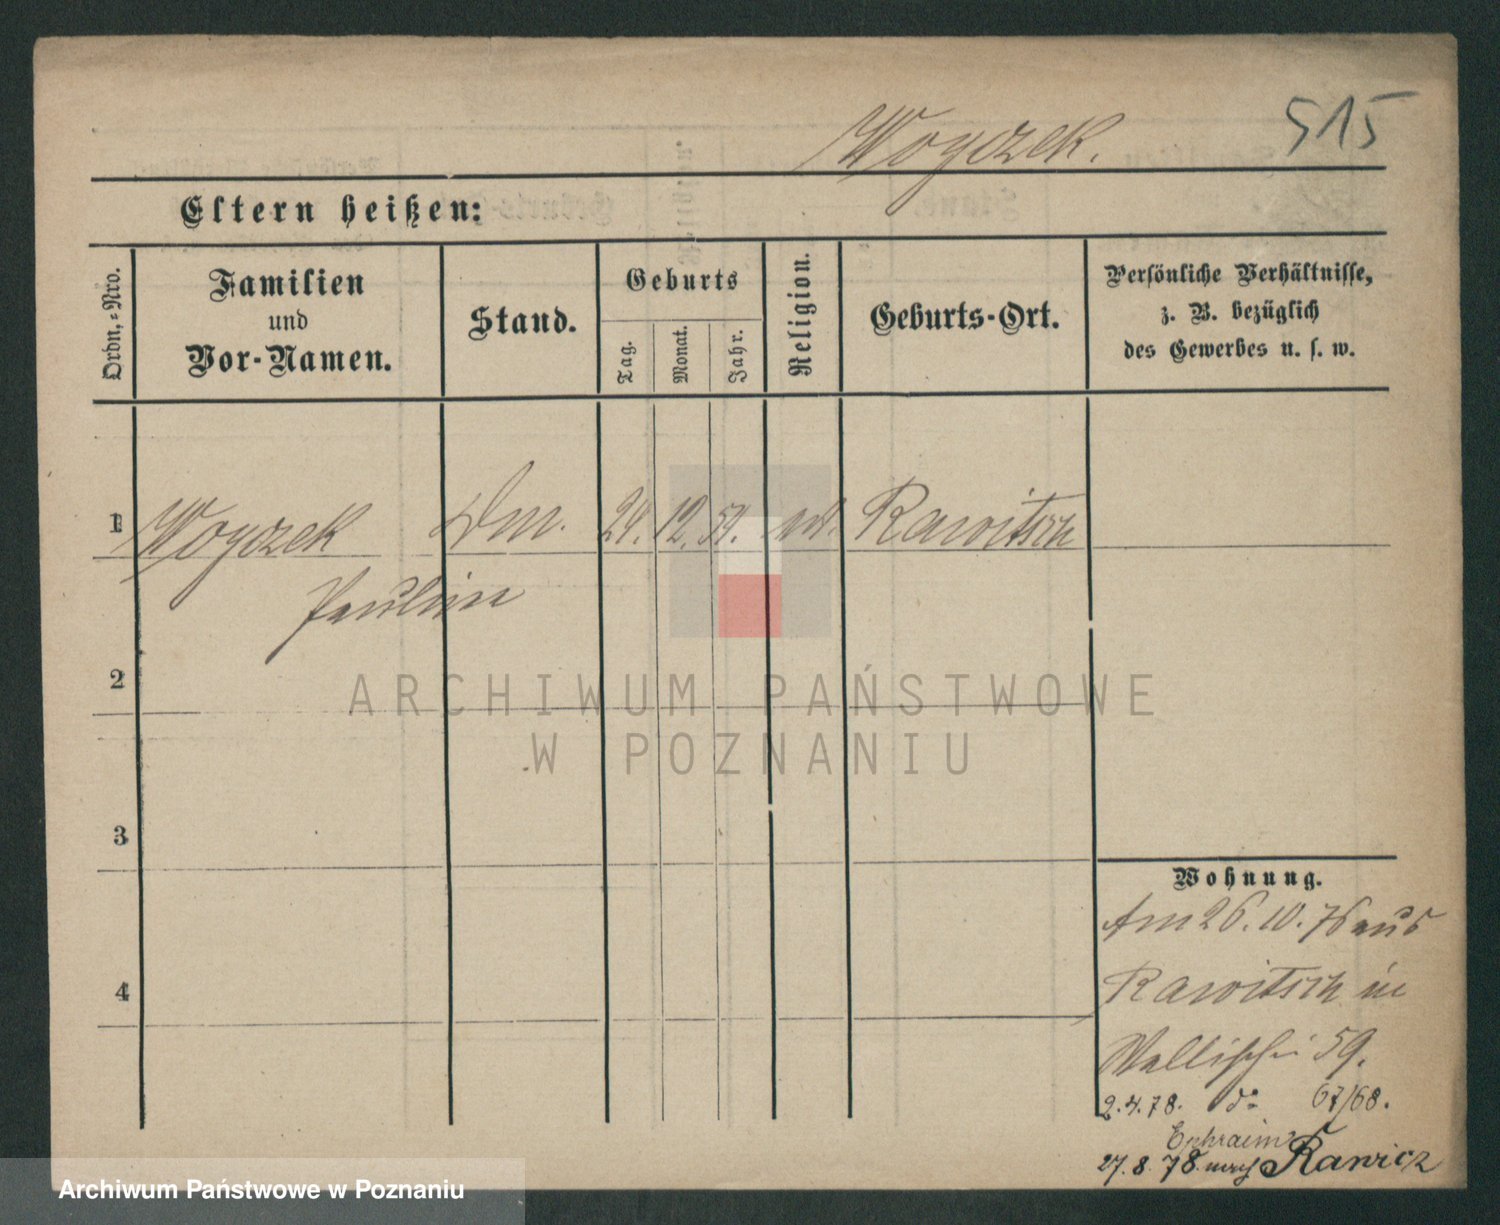 Woyczek.
515
Eltern heißen:
Ordn.-Nro.
Familien
und
Vor-Namen.
Stand.
Geburts
Tag.
Monat.
Jahr.
Religion.
Geburts-Ort.
Persönliche Verhältnisse,
z. B. bezüglich
des Gewerbes u. s. w.
1 Woyczek Dm. 24. 12. 54. Rawitsch
Paulina
2
3
4
Wohnung.
Am 26.10.76 aus
Rawitsch in
Wallischei 59.
2.4.78. do 67/68.
Ephraim
27.8.78 nach Rawicz
ARCHIWUM PAŃSTWOWE
W POZNANIU
Archiwum Państwowe w Poznaniu